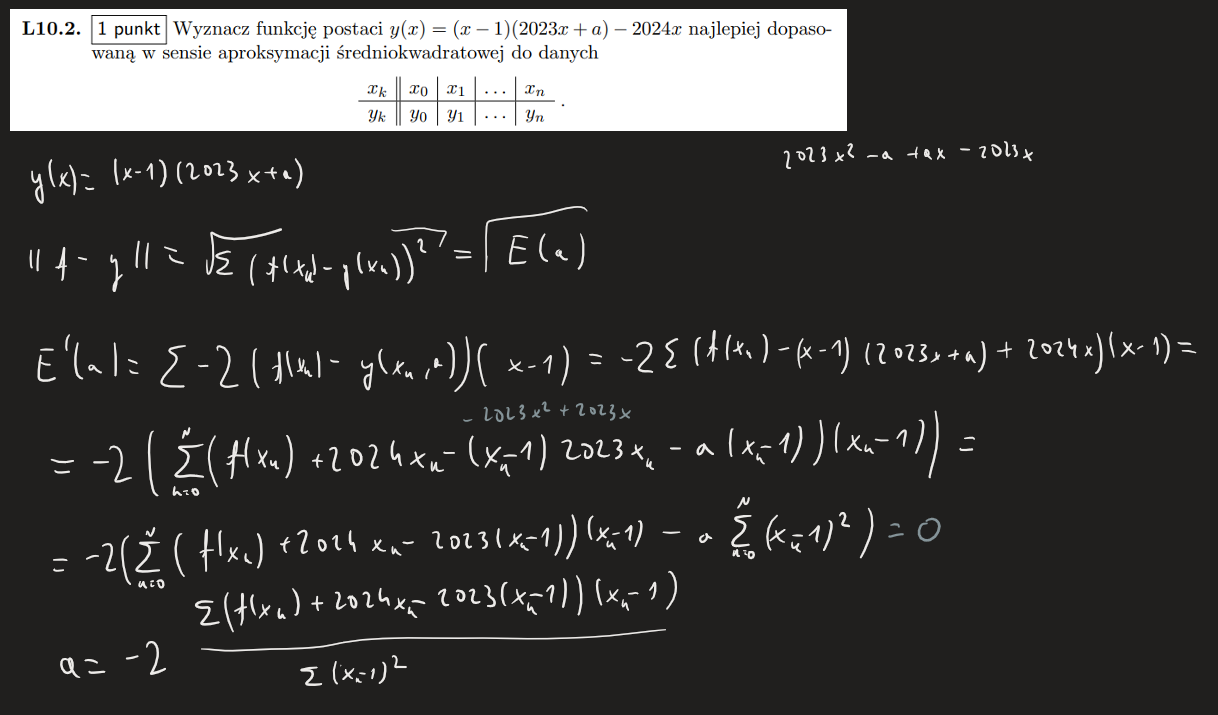 L10.2. 1 punkt Wyznacz funkcję postaci y(x) = (x − 1)(2023x + a) − 2024x najlepiej dopaso-
waną w sensie aproksymacji średniokwadratowej do danych
x_k x_0 x_1 ... x_n
y_k y_0 y_1 ... y_n .
2023x² - a + ax - 2023x
y(x) = (x-1)(2023x+a)
||f - y|| = √Σ(f(x_n) - y(x_n))² = √E(a)
E'(a) = Σ -2(f(x_n) - y(x_n, a))(x-1) = -2Σ(f(x_n) - (x-1)(2023x+a) + 2024x)(x-1) =
- 2023x² + 2023x
= -2(Σ_{n=0}^{N}(f(x_n) + 2024x_n - (x_n-1)2023x_n - a(x_n-1))(x_n-1)) =
= -2(Σ_{n=0}^{N}(f(x_n) + 2024x_n - 2023(x_n-1))(x_n-1) - a Σ_{n=0}^{N}(x_n-1)²) = 0
Σ(f(x_n) + 2024x_n - 2023(x_n-1))(x_n-1)
a = -2
Σ(x_n-1)²